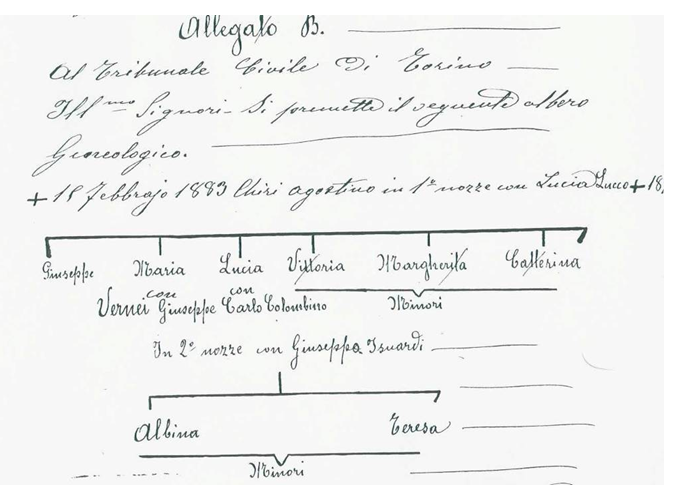 Allegato B.
Al Tribunale Civile Di Torino
Ill.mo Signori - Si premette il seguente albero
Geneologico.
+ 15 Febbrajo 1883 Chiri Agostino in 1e nozze con Lucia Lucco + 18
Giuseppe Maria Lucia Vittoria Margherita Catterina
con con
Vernei Giuseppe Carlo Colombino Minori
In 2e nozze con Giuseppa Isuardi
Albina Teresa
Minori